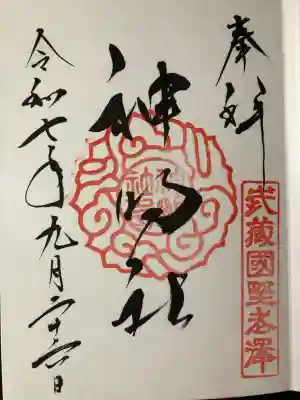 奉拝
武藏國埜老澤
神明社
令和七年九月二十六日